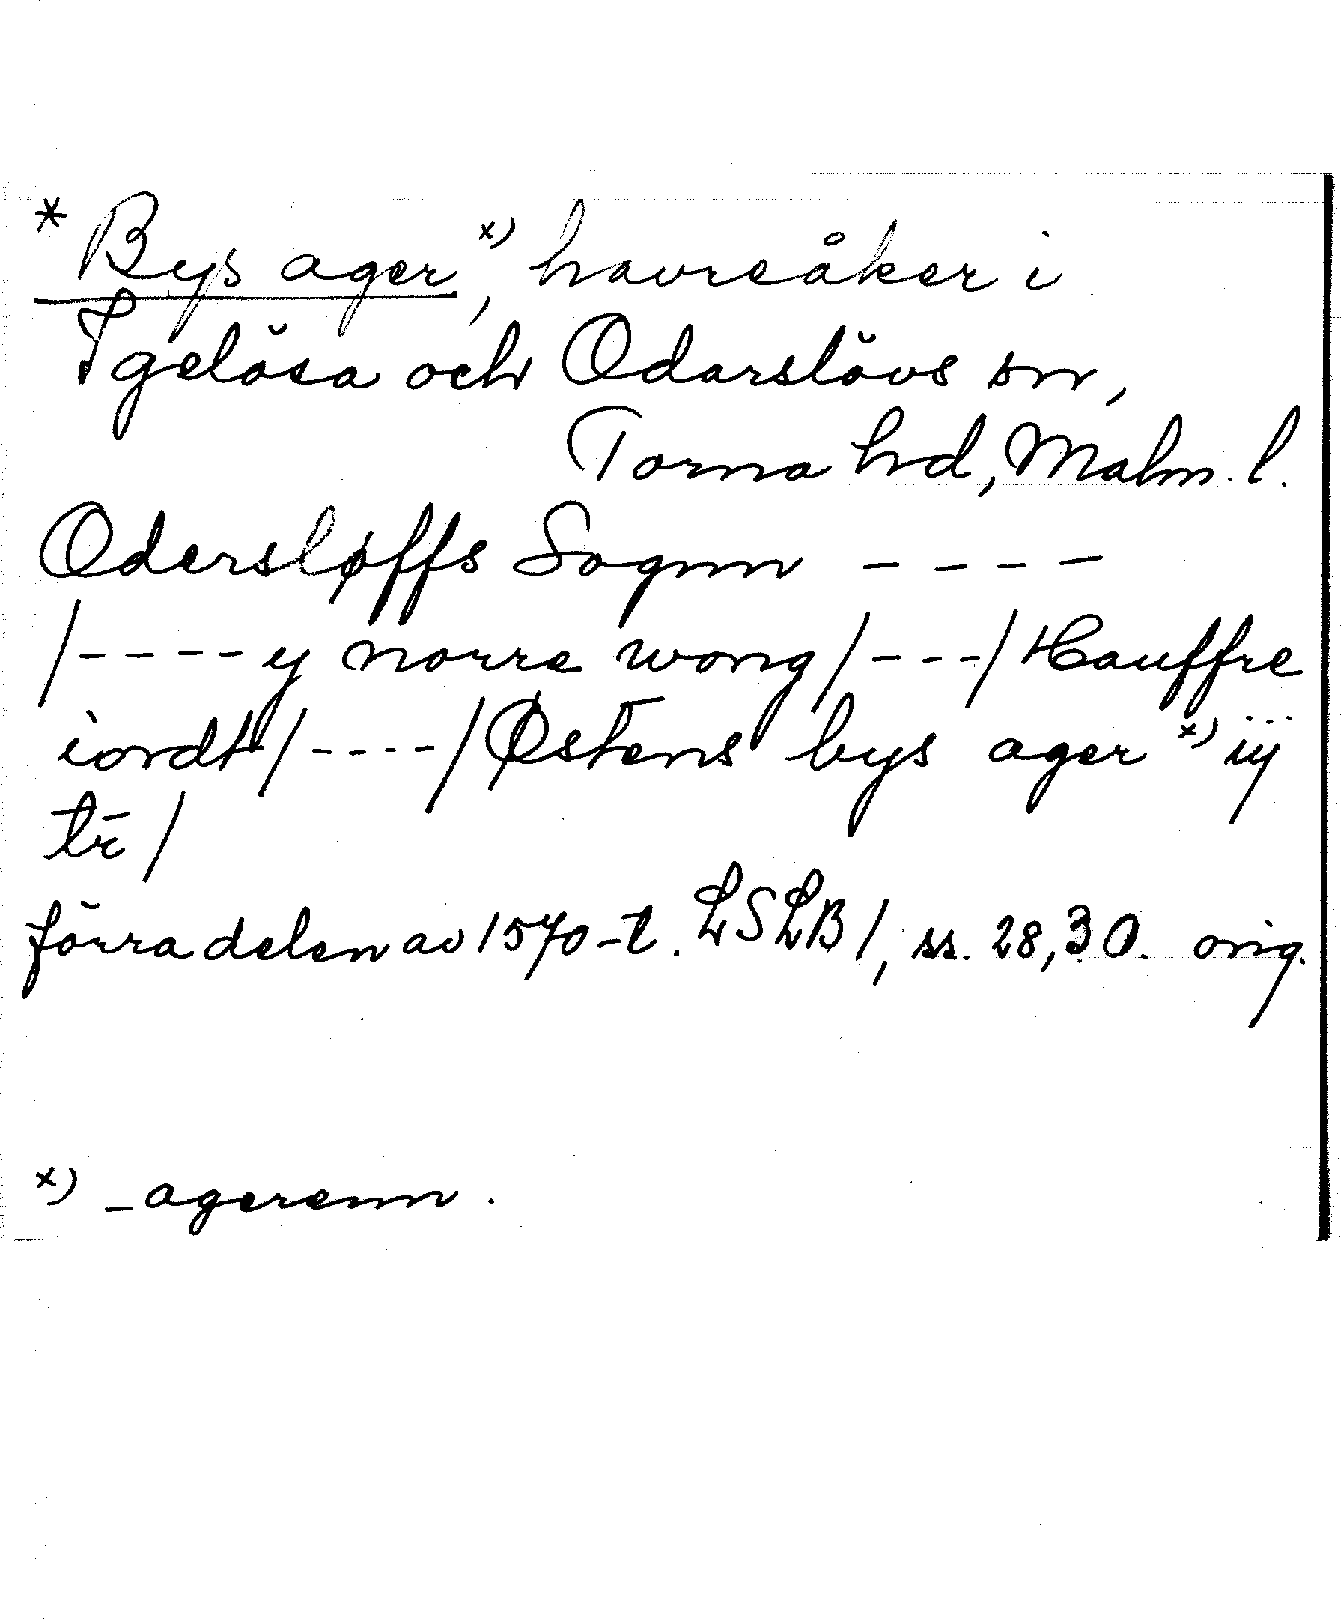 * Bys ager ˣ⁾, havreåker i
Igelösa och Odarslövs snr,
Torna hd, Malm. l.
Odersløffs Sognn - - - -
/- - - - y norre wong/- - -/Hauffre
iordt/- - - -/Østens bys ager ˣ⁾ iij
tr̄/
förra delen av 1570-t. LSLB 1, ss. 28, 30. orig.
ˣ⁾ -agerenn.